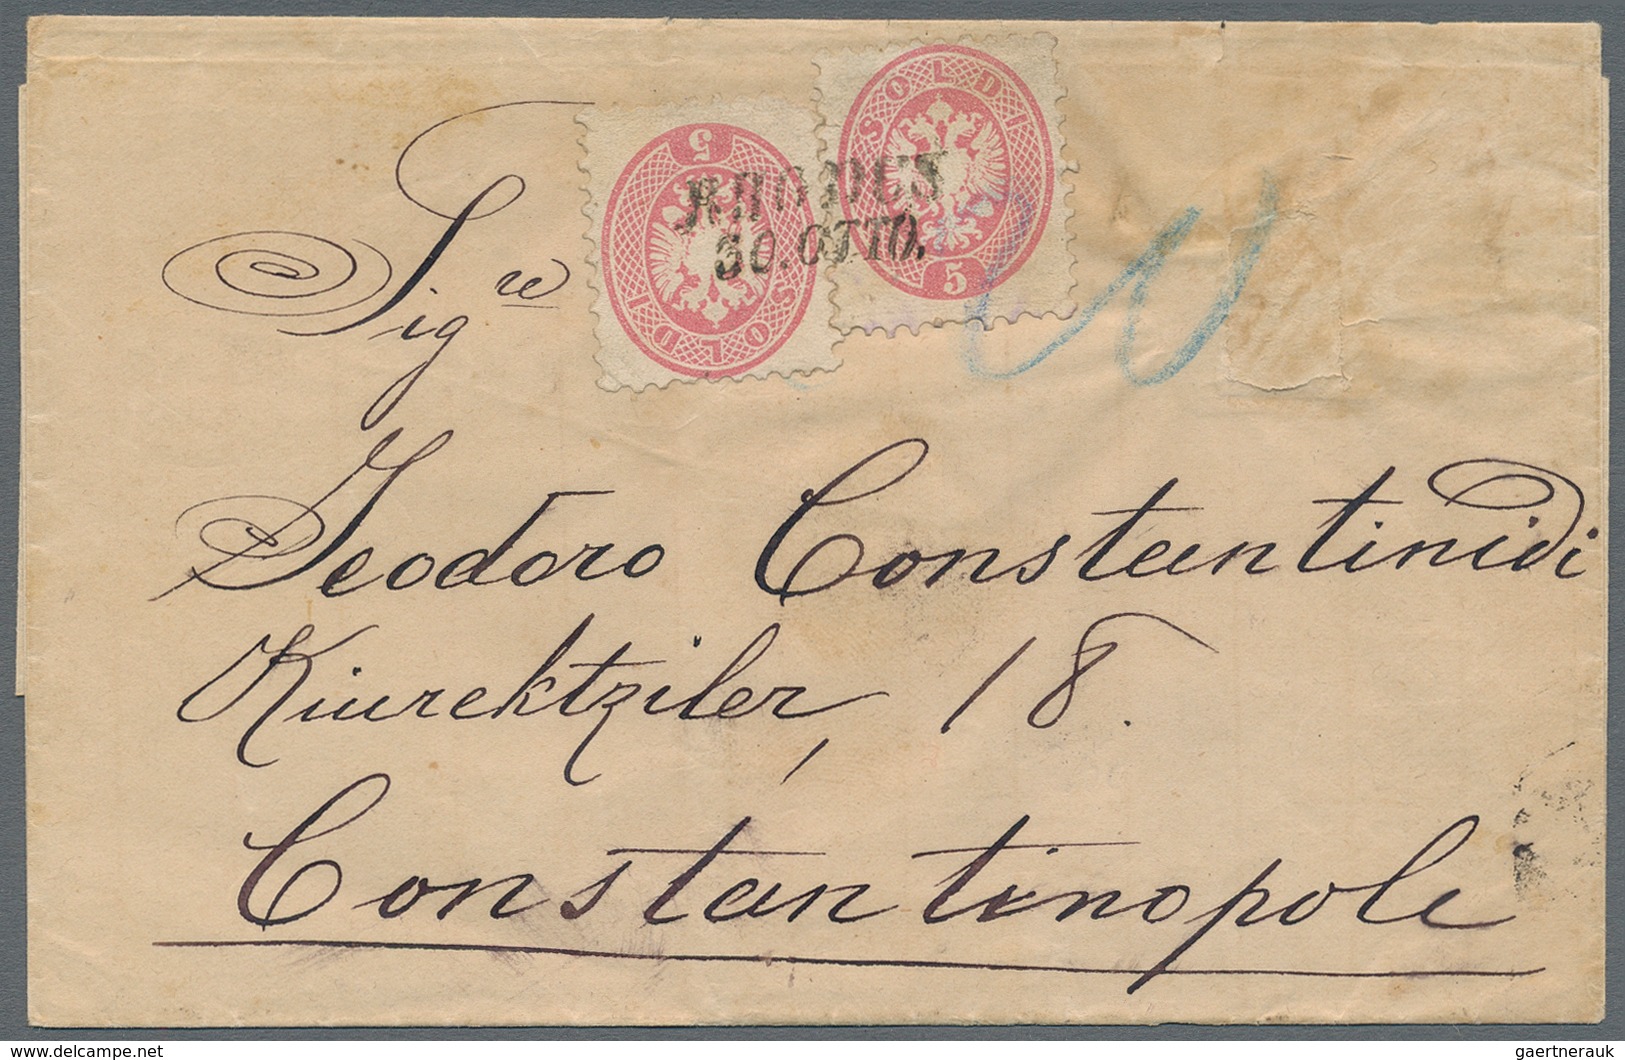 5 SOLDI
SOLDI 5
RHODUS
30. OTTO.
10
Sig.re
Teodoro Constantinidi
Kiurektziler, 18.
Constantinopole
delcampe.net
gaertnerauk